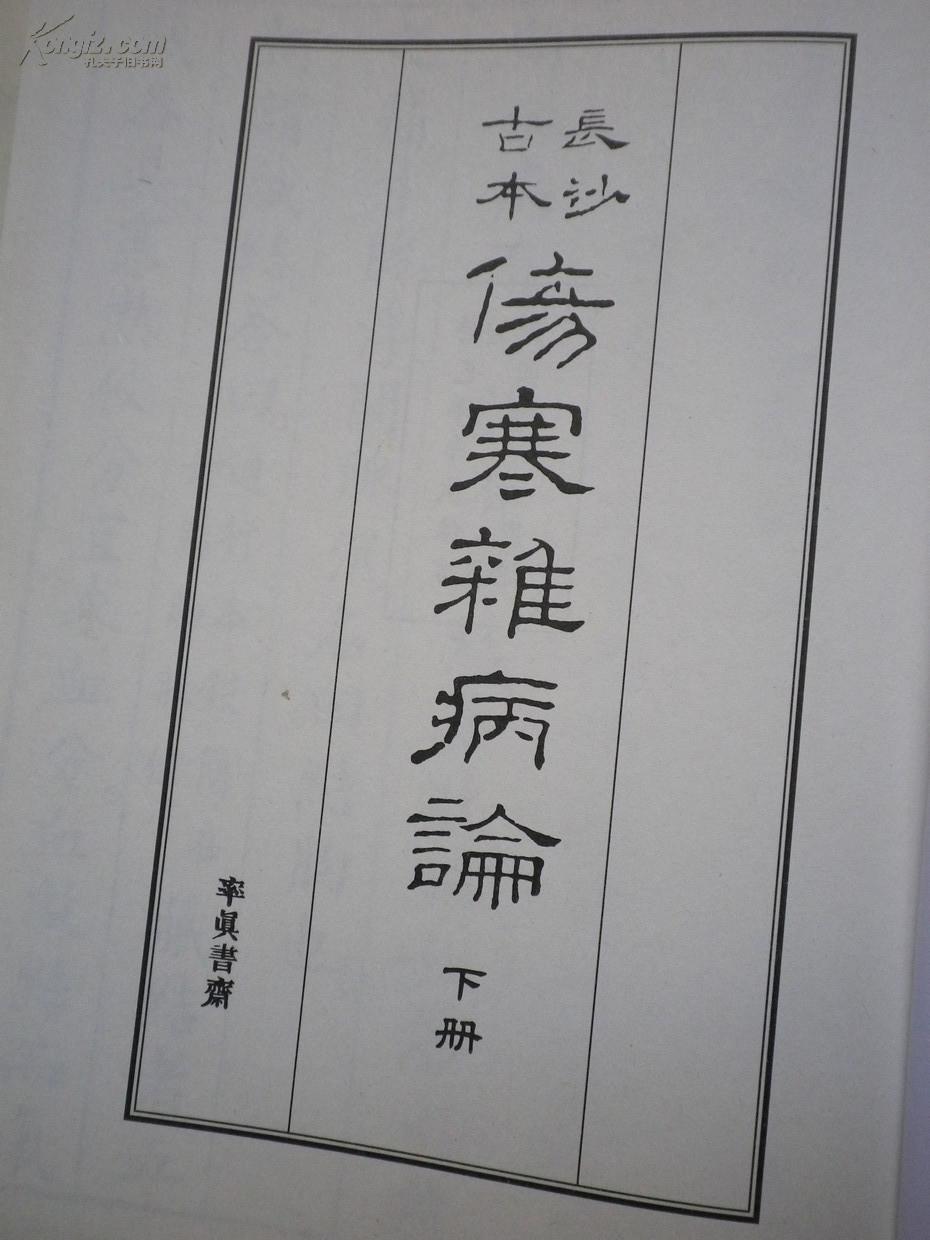 Kongfz.com
孔夫子旧书网
長沙
古本
傷寒雜病論
下册
率眞書齋